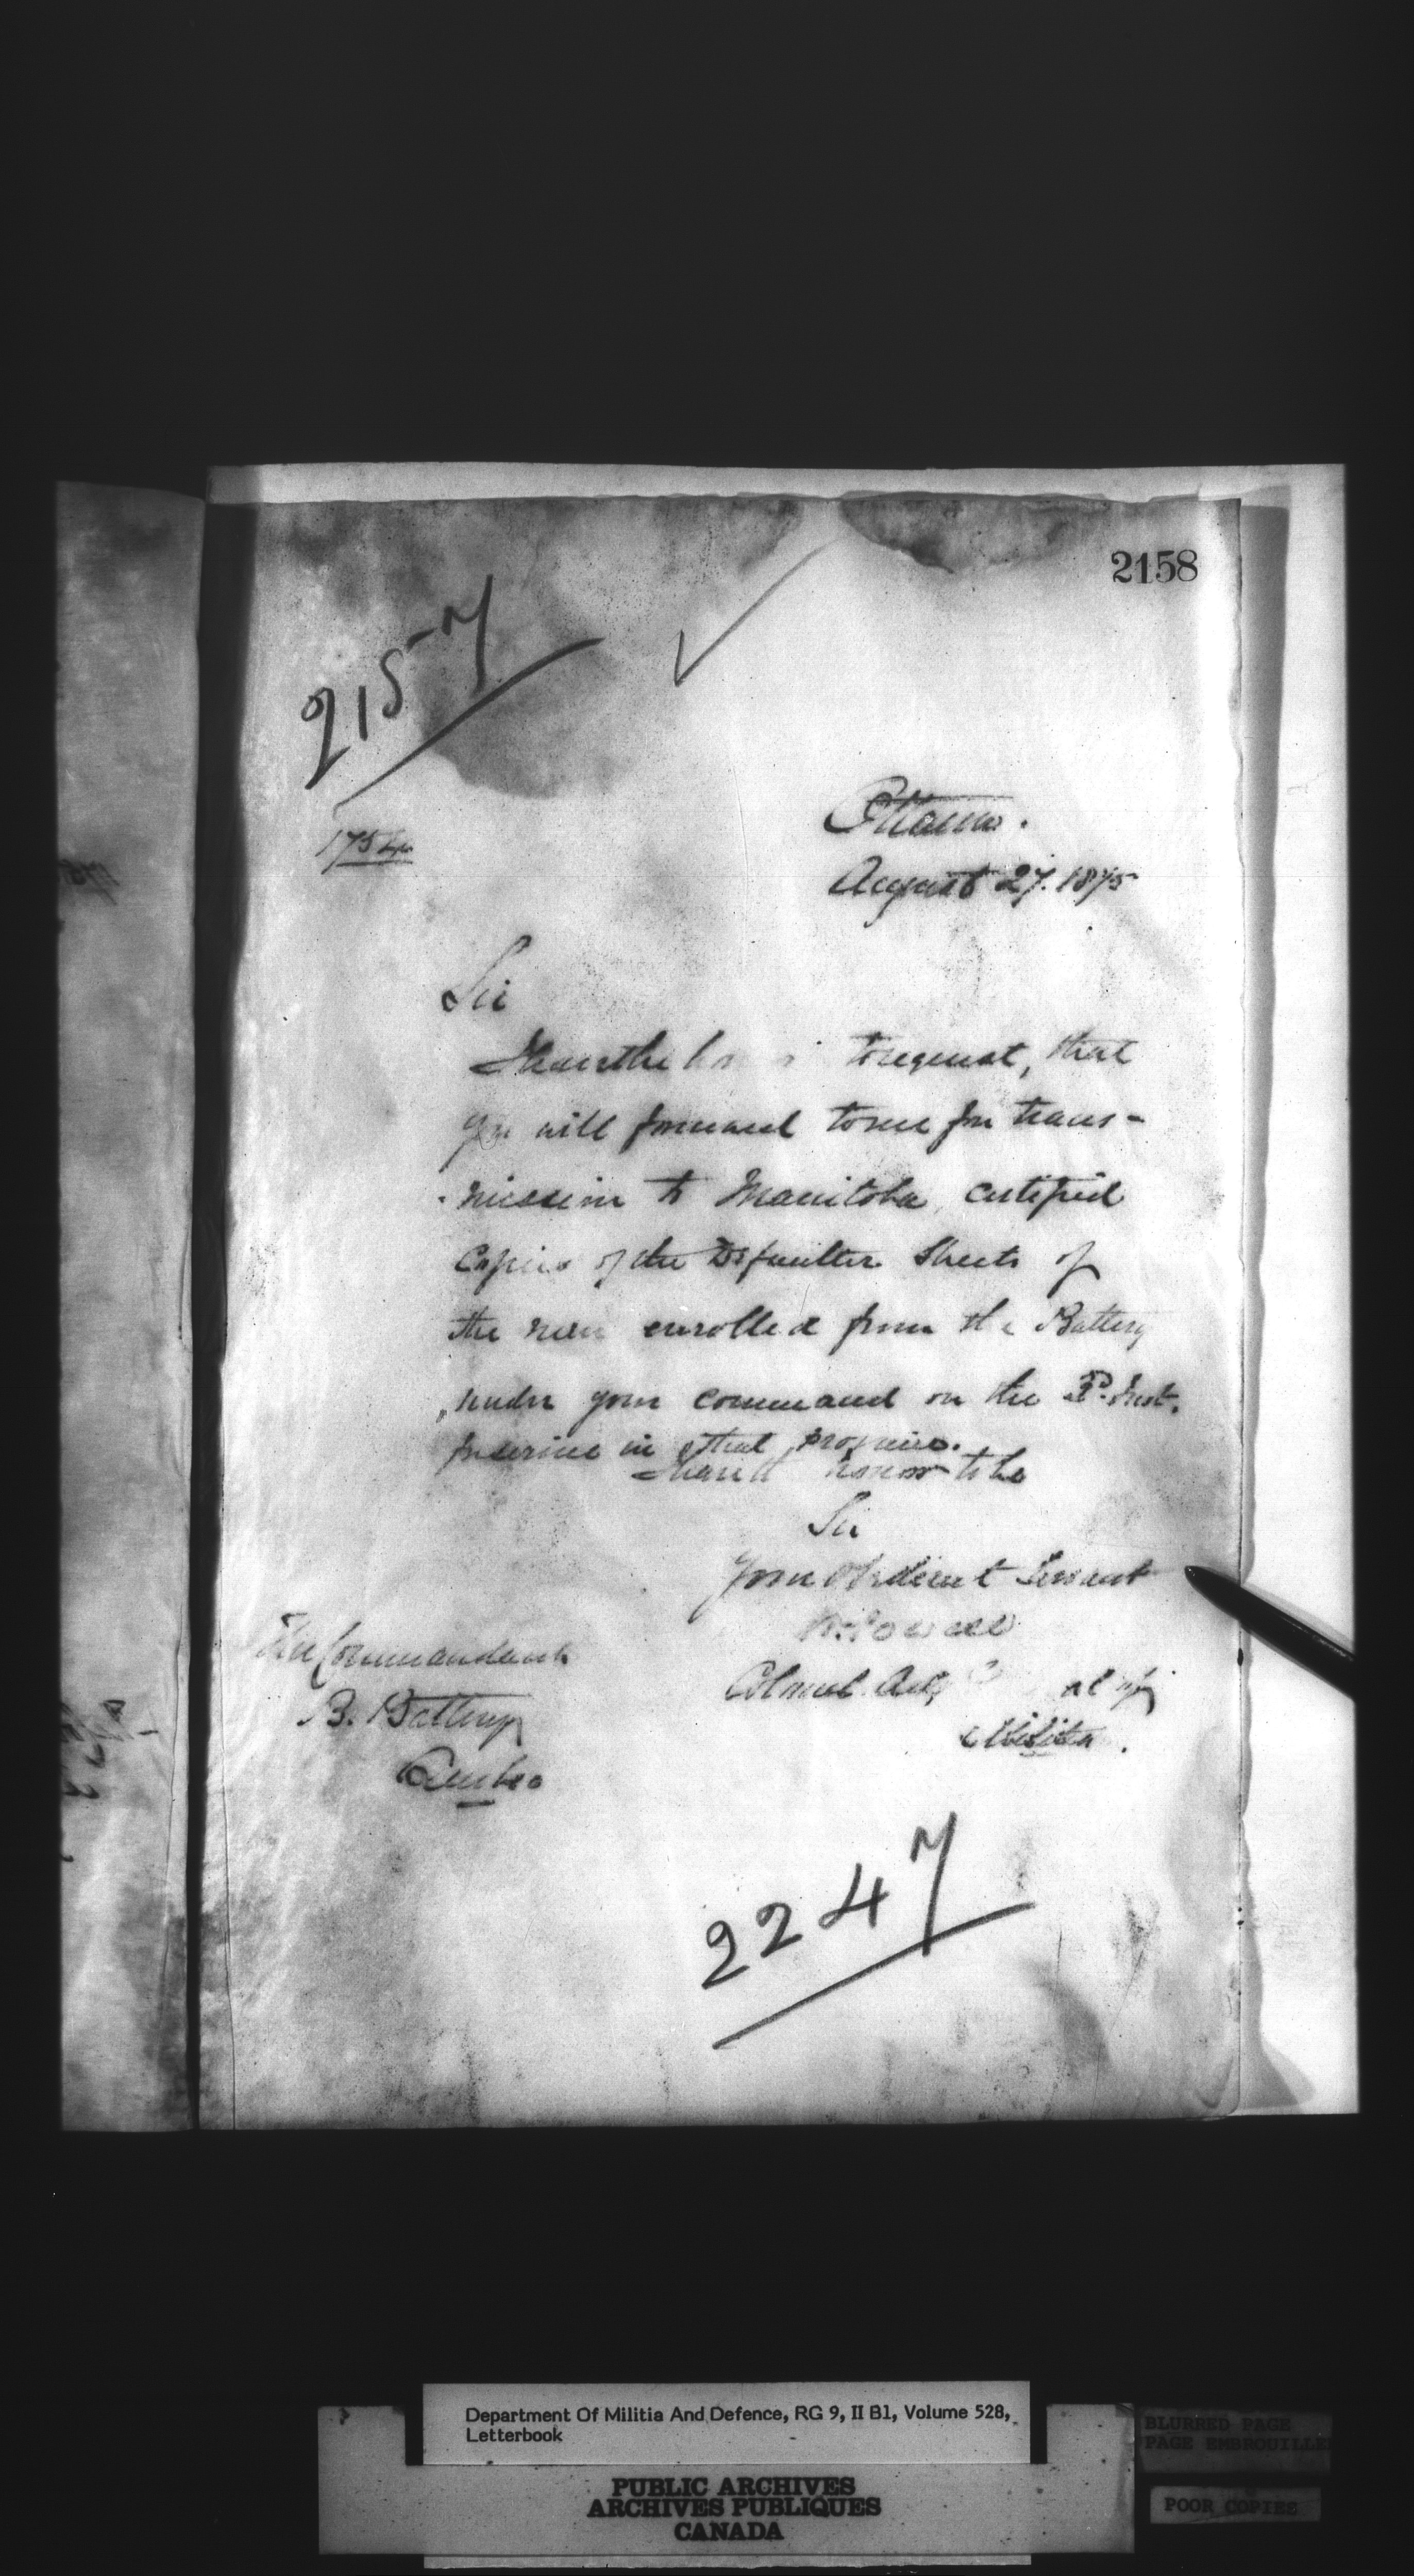 2158
2157
1754
Ottawa.
August 27. 1875
Sir
I have the honor to request, that
you will forward to me for trans-
-mission to Manitoba, certified
Copies of the Defaulter Sheets of
the men enrolled from the Battery
under your command on the Inst.
for service in that province.
I have the honor to be
Sir
Your Obedient Servant
W. Powell
Colonel. Adj al of
Militia.
The Commandant
B. Battery
Quebec
2247
Department Of Militia And Defence, RG 9, II B1, Volume 528,
Letterbook
PUBLIC ARCHIVES
ARCHIVES PUBLIQUES
CANADA
BLURRED PAGE
PAGE EMBROUILLE
POOR COPIES